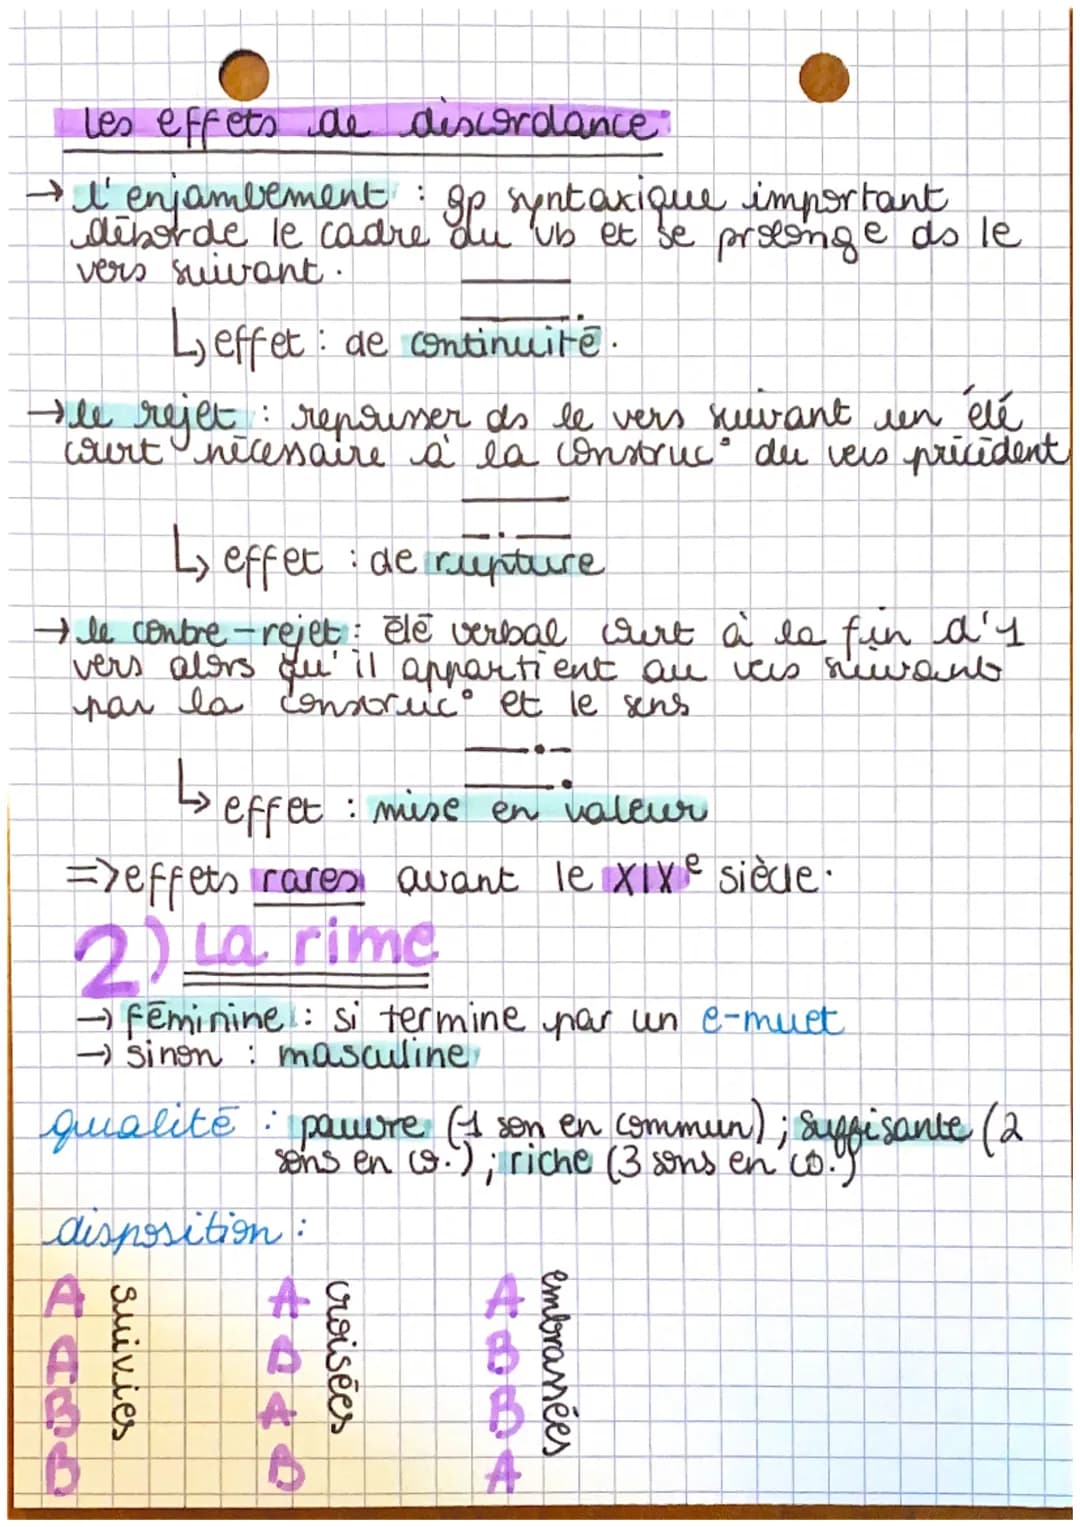 les effets de discordance :
→ l'enjambement : gp syntaxique important
déborde le cadre du vb et se prolonge ds le
vers suivant.
↳ effet : de continuité.
→ le rejet : repousser ds le vers suivant un élé
court nécessaire à la construc° du vers précédent
↳ effet : de rupture
→ le contre-rejet : élé verbal court à la fin d'1
vers alors qu'il appartient au vers suivant
par la construc° et le sens
↳ effet : mise en valeur
=> effets rares avant le XIXe siècle.
2) La rime
→ féminine : si termine par un e-muet
→ sinon : masculine
qualité : pauvre (1 son en commun) ; suffisante (2
sons en co.) ; riche (3 sons en co.)
disposition :
A A B B suivies
A B A B croisées
A B B A embrassées